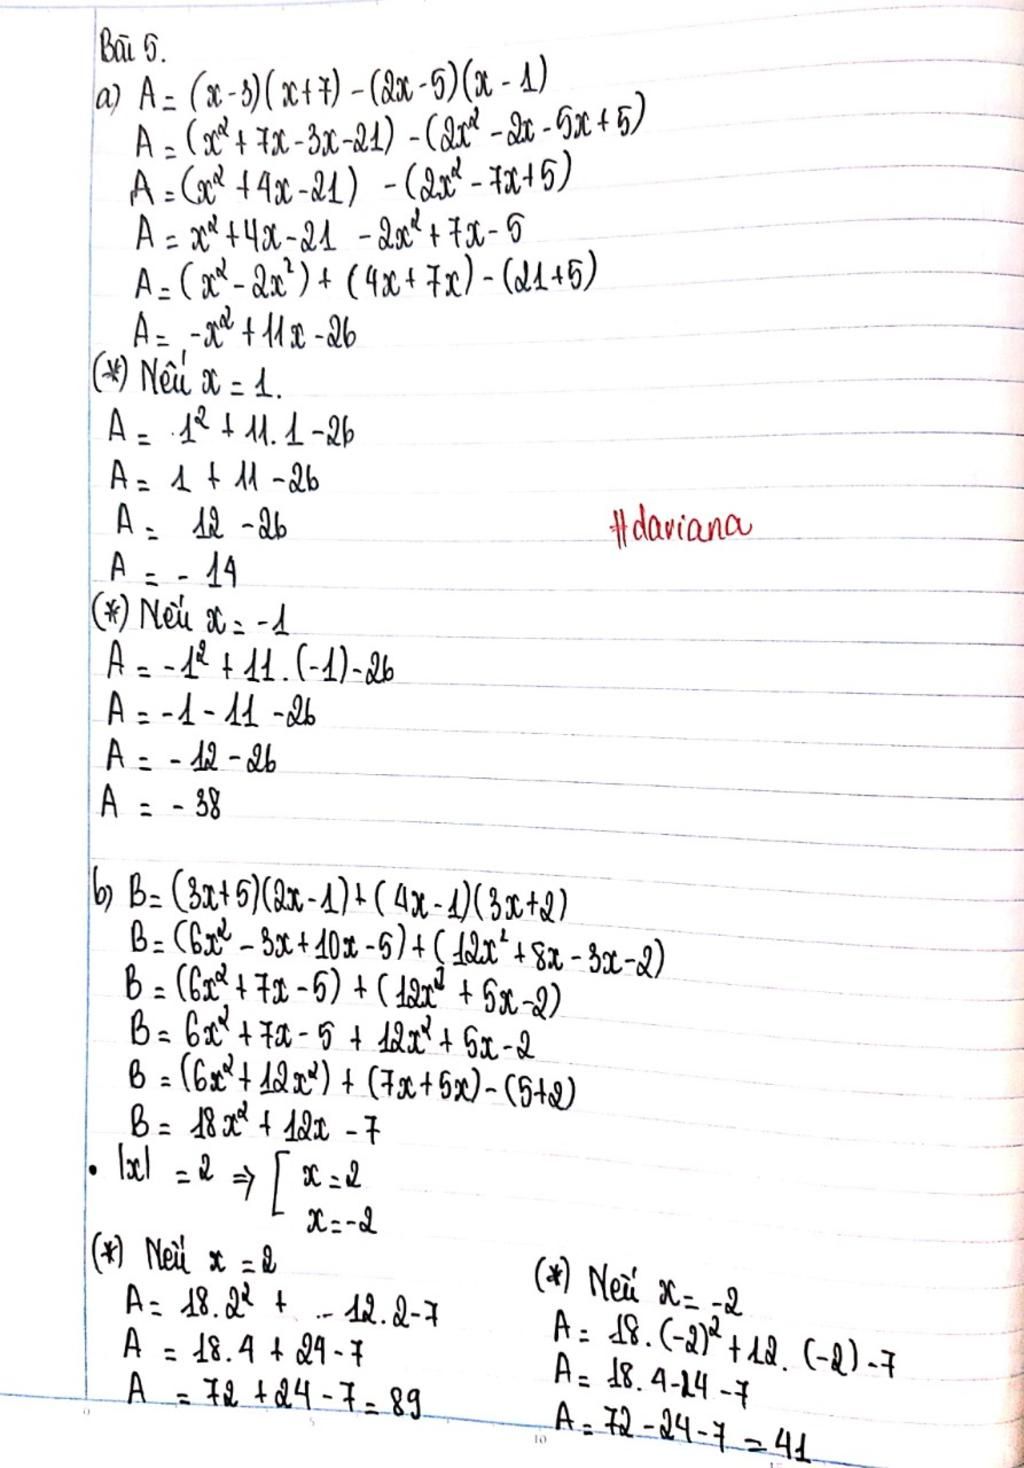 Bài 5.
a) A = (x-3)(x+7) - (2x-5)(x-1)
A = (x² + 7x - 3x - 21) - (2x² - 2x - 5x + 5)
A = (x² + 4x - 21) - (2x² - 7x + 5)
A = x² + 4x - 21 - 2x² + 7x - 5
A = (x² - 2x²) + (4x + 7x) - (21 + 5)
A = -x² + 11x - 26
(*) Nếu x = 1.
A = 1² + 11.1 - 26
A = 1 + 11 - 26
A = 12 - 26
#daviana
A = - 14
(*) Nếu x = -1
A = -1² + 11.(-1) - 26
A = -1 - 11 - 26
A = - 12 - 26
A = - 38
b) B = (3x+5)(2x-1) + (4x-1)(3x+2)
B = (6x² - 3x + 10x - 5) + (12x² + 8x - 3x - 2)
B = (6x² + 7x - 5) + (12x² + 5x - 2)
B = 6x² + 7x - 5 + 12x² + 5x - 2
B = (6x² + 12x²) + (7x + 5x) - (5+2)
B = 18x² + 12x - 7
• |x| = 2 ⇒ [ x = 2
x = -2
(*) Nếu x = 2
A = 18.2² + 12.2 - 7
A = 18.4 + 24 - 7
A = 72 + 24 - 7 = 89
(*) Nếu x = -2
A = 18.(-2)² + 12.(-2) - 7
A = 18.4 - 24 - 7
A = 72 - 24 - 7 = 41